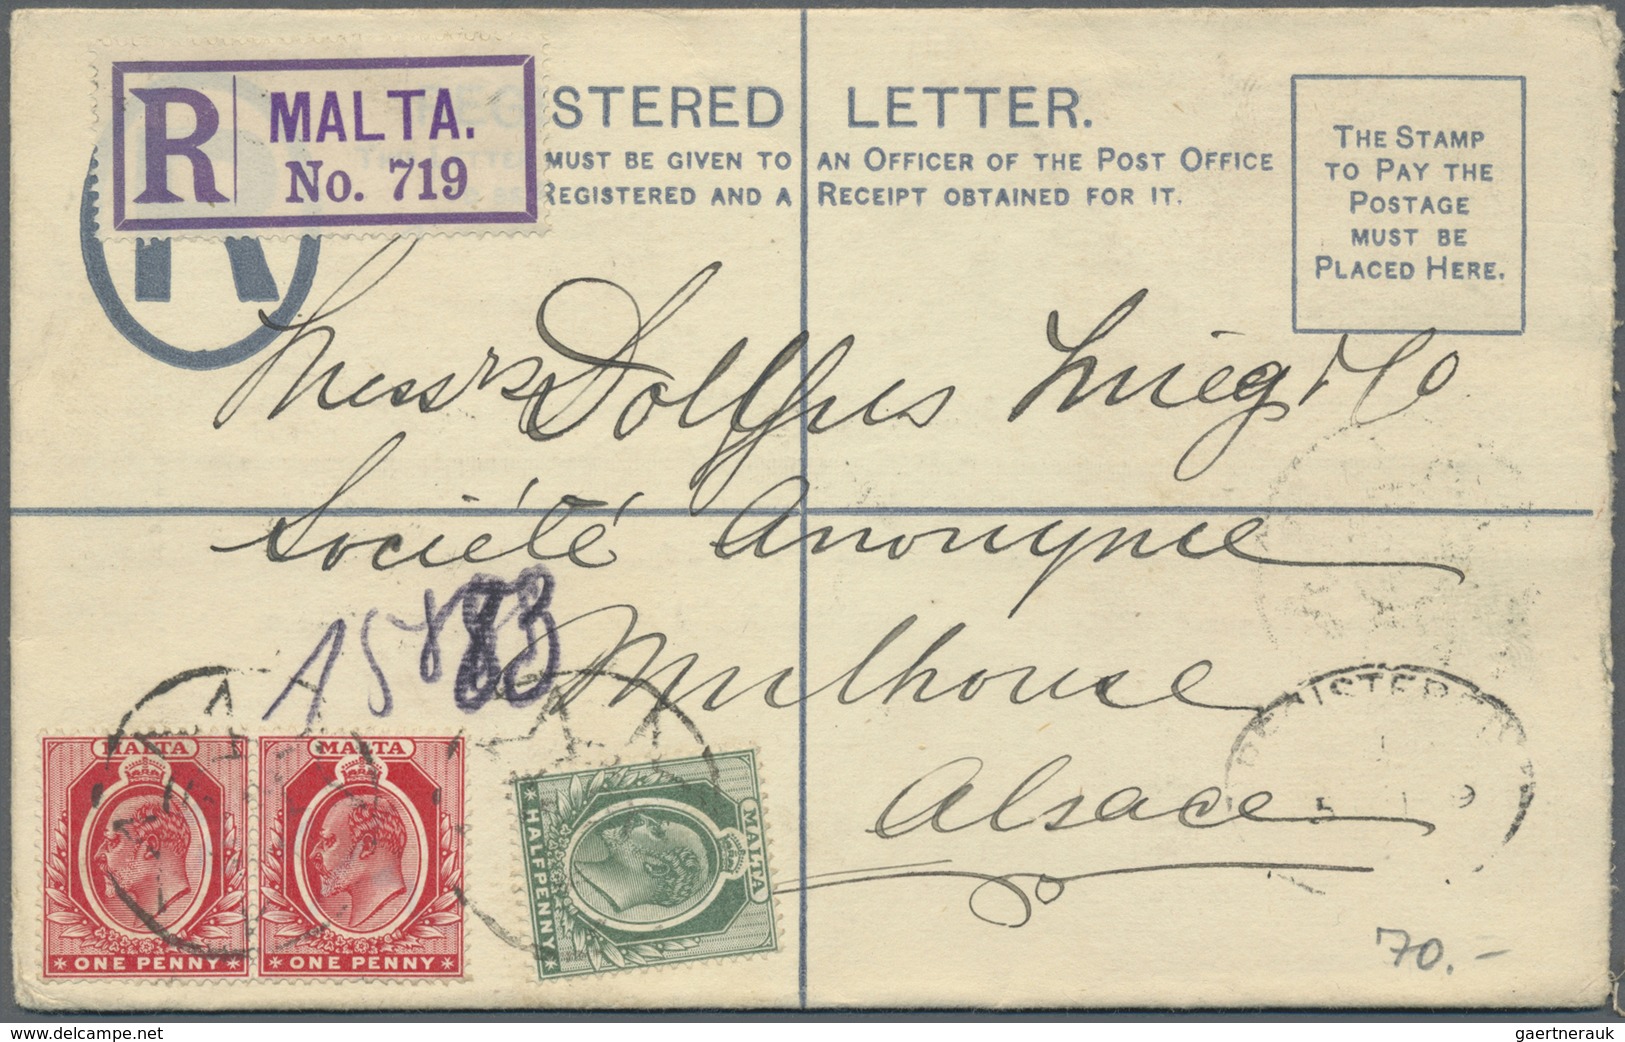 R MALTA.
No. 719
STERED LETTER.
MUST BE GIVEN TO AN OFFICER OF THE POST OFFICE
REGISTERED AND A RECEIPT OBTAINED FOR IT.
THE STAMP
TO PAY THE
POSTAGE
MUST BE
PLACED HERE.
Messrs Dollfus Mieg & Co
Société Anonyme
Mulhouse
Alsace
MALTA
ONE PENNY
MALTA
ONE PENNY
MALTA
HALFPENNY
REGISTERED
70.-
www.delcampe.net
gaertnerauk